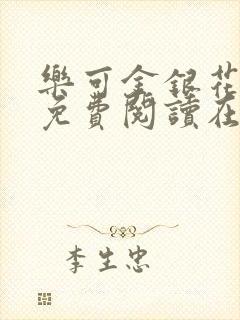 樂可金銀花
免費閱讀在
李生忠